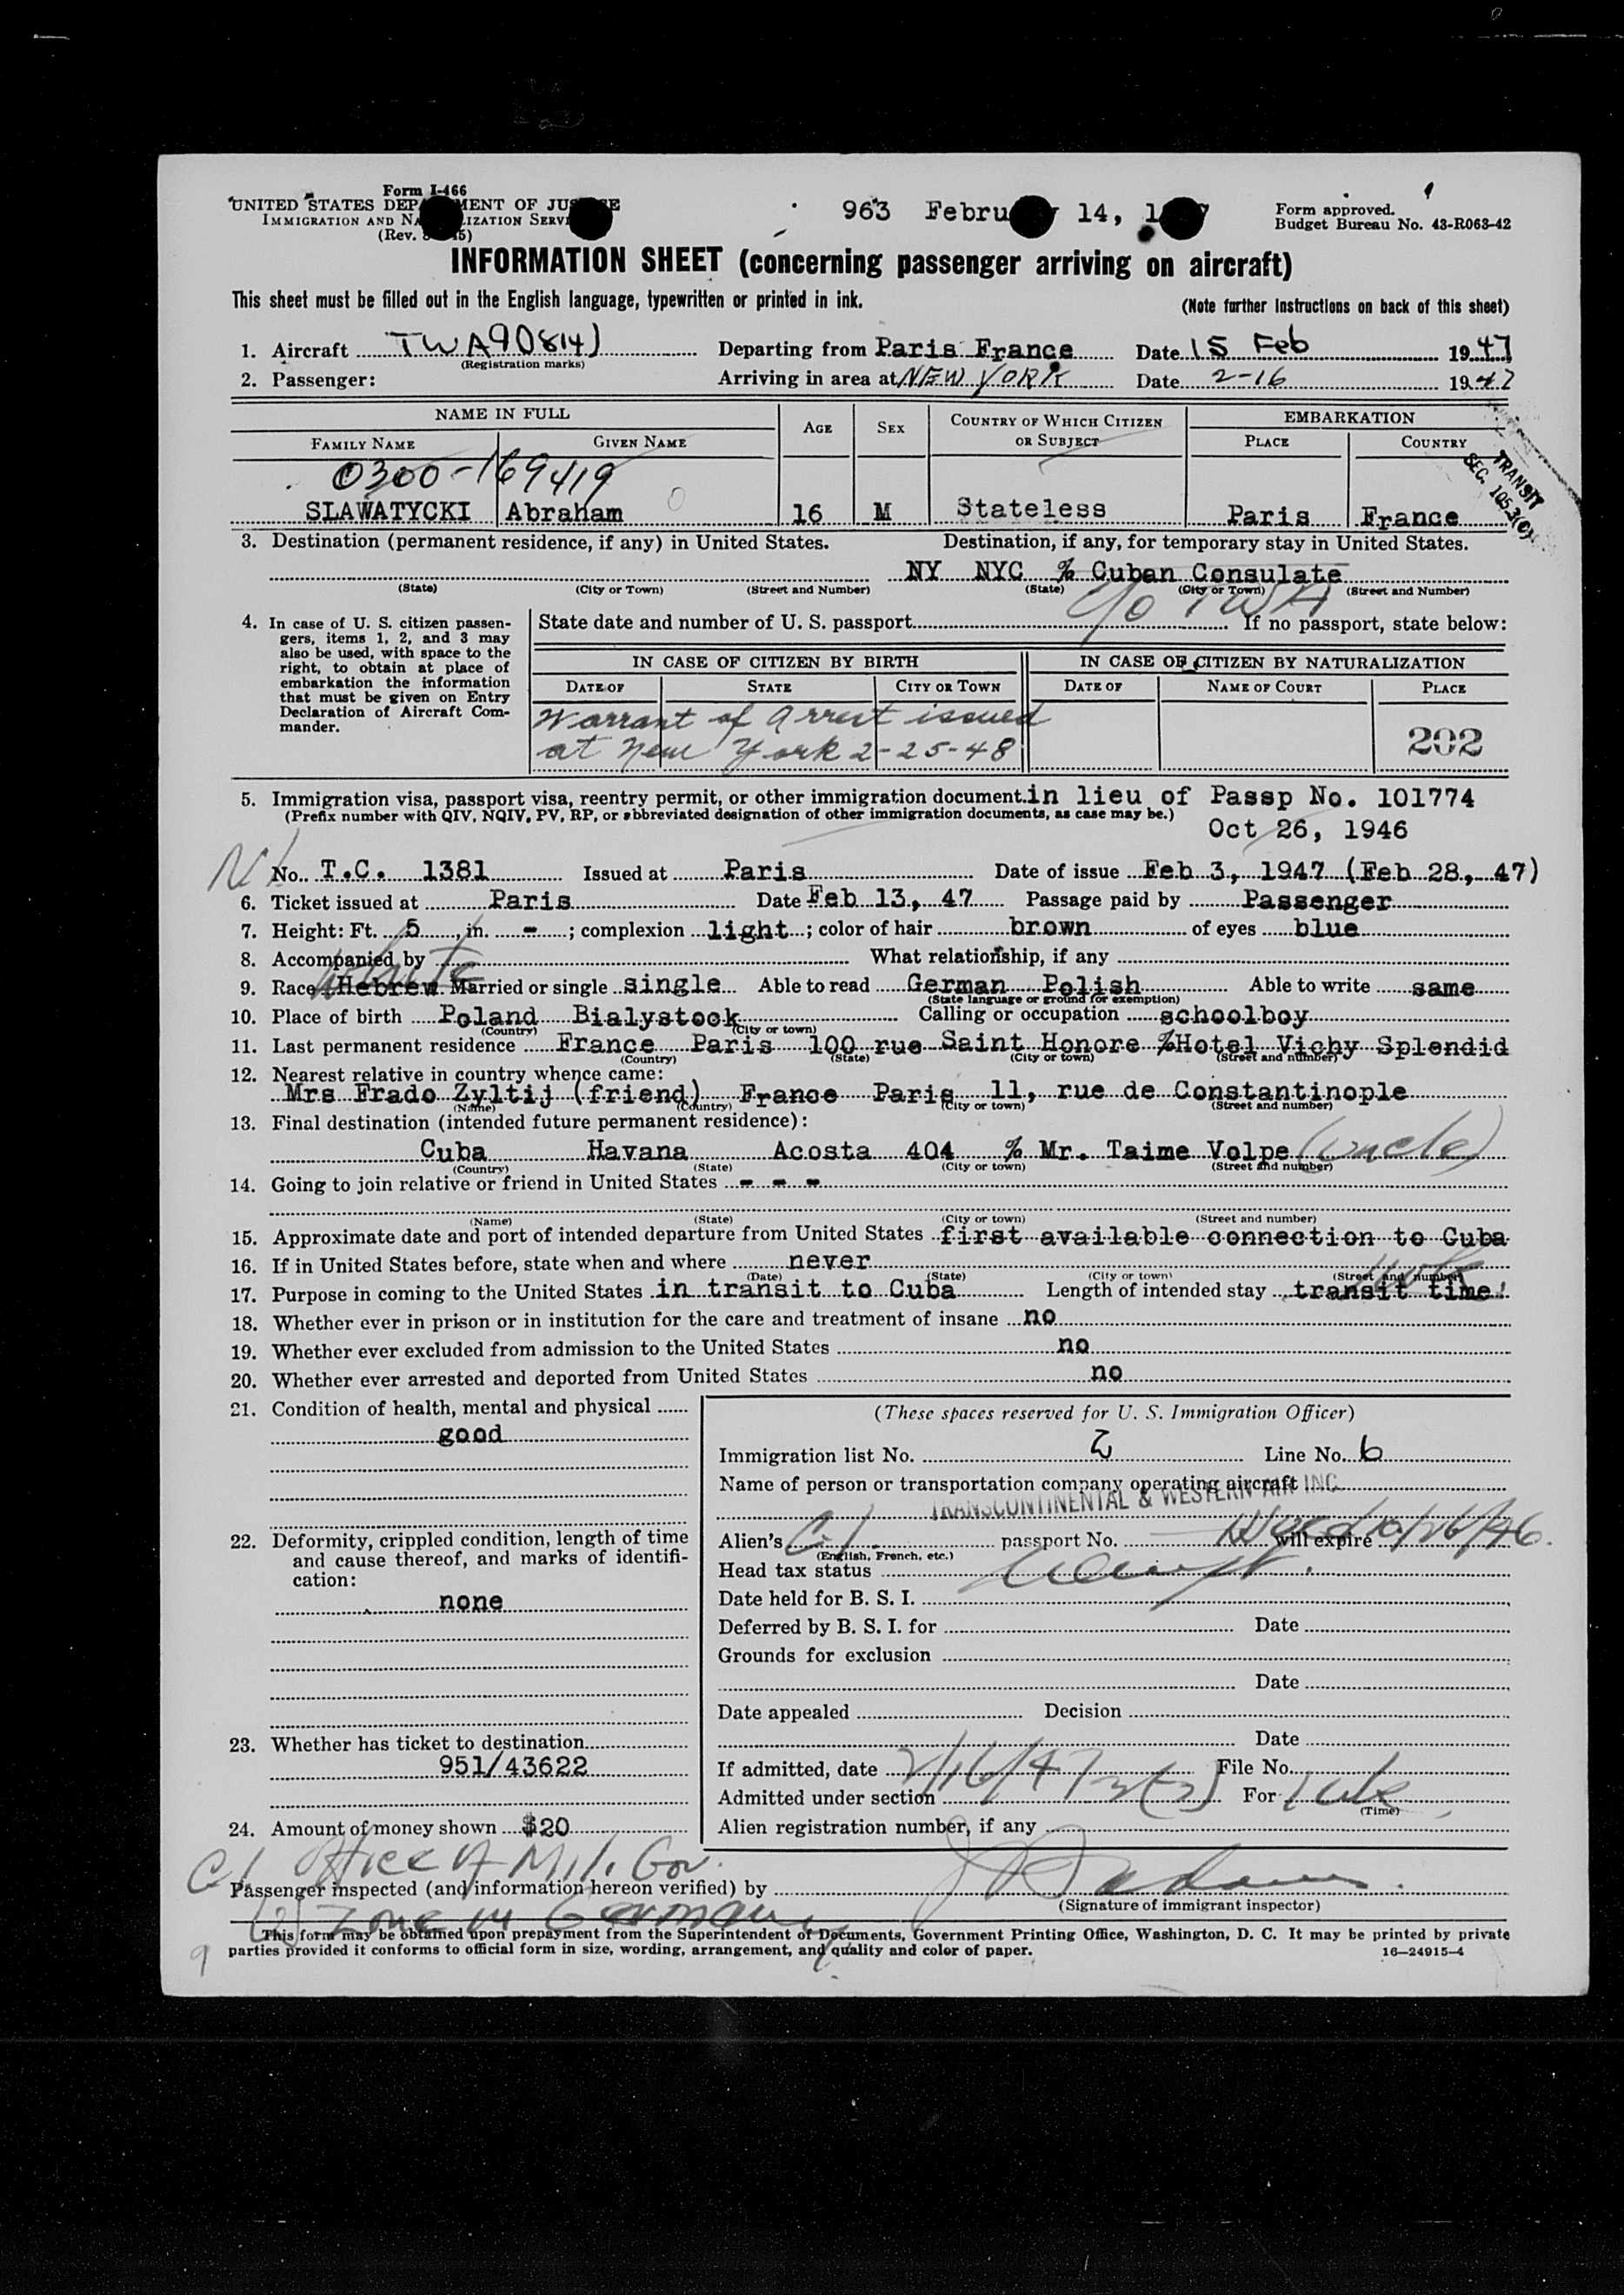 Form I-466
UNITED STATES DEPA MENT OF JUS E
IMMIGRATION AND NA LIZATION SERVI
(Rev. 5)
963 Febru y 14, 1 7
Form approved.
Budget Bureau No. 43-R063-42
INFORMATION SHEET (concerning passenger arriving on aircraft)
This sheet must be filled out in the English language, typewritten or printed in ink. (Note further instructions on back of this sheet)
1. Aircraft TWA90814) Departing from Paris France Date 15 Feb 1947
(Registration marks)
2. Passenger: Arriving in area at NEW YORK Date 2-16 1947
NAME IN FULL AGE SEX COUNTRY OF WHICH CITIZEN OR SUBJECT EMBARKATION
FAMILY NAME GIVEN NAME PLACE COUNTRY
TRANSIT
SEC. 105.3(C)
0300-169419
SLAWATYCKI Abraham 16 M Stateless Paris France
3. Destination (permanent residence, if any) in United States. Destination, if any, for temporary stay in United States.
NY NYC % Cuban Consulate
(State) (City or Town) (Street and Number) (State) (City or Town) (Street and Number)
c/o TWA
4. In case of U. S. citizen passen-
gers, items 1, 2, and 3 may
also be used, with space to the
right, to obtain at place of
embarkation the information
that must be given on Entry
Declaration of Aircraft Com-
mander.
State date and number of U. S. passport If no passport, state below:
IN CASE OF CITIZEN BY BIRTH IN CASE OF CITIZEN BY NATURALIZATION
DATE OF STATE CITY OR TOWN DATE OF NAME OF COURT PLACE
Warrant of Arrest issued
at New York 2-25-48
202
5. Immigration visa, passport visa, reentry permit, or other immigration document. in lieu of Passp No. 101774
(Prefix number with QIV, NQIV, PV, RP, or abbreviated designation of other immigration documents, as case may be.) Oct 26, 1946
No. T.C. 1381 Issued at Paris Date of issue Feb 3, 1947 (Feb 28, 47)
6. Ticket issued at Paris Date Feb 13, 47 Passage paid by Passenger
7. Height: Ft. 5, in. - ; complexion light ; color of hair brown of eyes blue
8. Accompanied by What relationship, if any
white
9. Race Hebrew Married or single single Able to read German Polish Able to write same
(State language or ground for exemption)
10. Place of birth Poland Bialystock Calling or occupation schoolboy
(Country) (City or town)
11. Last permanent residence France Paris 100 rue Saint Honore %Hotel Vichy Splendid
(Country) (State) (City or town) (Street and number)
12. Nearest relative in country whence came:
Mrs Frado Zyltij (friend) France Paris 11, rue de Constantinople
(Name) (Country) (City or town) (Street and number)
13. Final destination (intended future permanent residence):
Cuba Havana Acosta 404 % Mr. Taime Volpe (uncle)
(Country) (State) (City or town) (Street and number)
14. Going to join relative or friend in United States - - -
(Name) (State) (City or town) (Street and number)
15. Approximate date and port of intended departure from United States first available connection to Cuba
16. If in United States before, state when and where never
(Date) (State) (City or town) (Street and number)
17. Purpose in coming to the United States in transit to Cuba Length of intended stay transit time
18. Whether ever in prison or in institution for the care and treatment of insane no
19. Whether ever excluded from admission to the United States no
20. Whether ever arrested and deported from United States no
21. Condition of health, mental and physical
good
22. Deformity, crippled condition, length of time
and cause thereof, and marks of identifi-
cation:
none
23. Whether has ticket to destination
951/43622
24. Amount of money shown $20
(These spaces reserved for U. S. Immigration Officer)
Immigration list No. 2 Line No. 6
Name of person or transportation company operating aircraft
TRANSCONTINENTAL & WESTERN AIR INC
Alien's C.I. passport No. will expire 10/26/46
(English, French, etc.)
Head tax status
Date held for B. S. I.
Deferred by B. S. I. for Date
Grounds for exclusion
Date
Date appealed Decision
Date
If admitted, date 2/16/47 File No.
Admitted under section 3(3) For 1 wk
(Time)
Alien registration number, if any
CI Office of Mil. Gov.
Passenger inspected (and information hereon verified) by
(Signature of immigrant inspector)
Zone in Germany
This form may be obtained upon prepayment from the Superintendent of Documents, Government Printing Office, Washington, D. C. It may be printed by private
parties provided it conforms to official form in size, wording, arrangement, and quality and color of paper. 16—24915-4
9